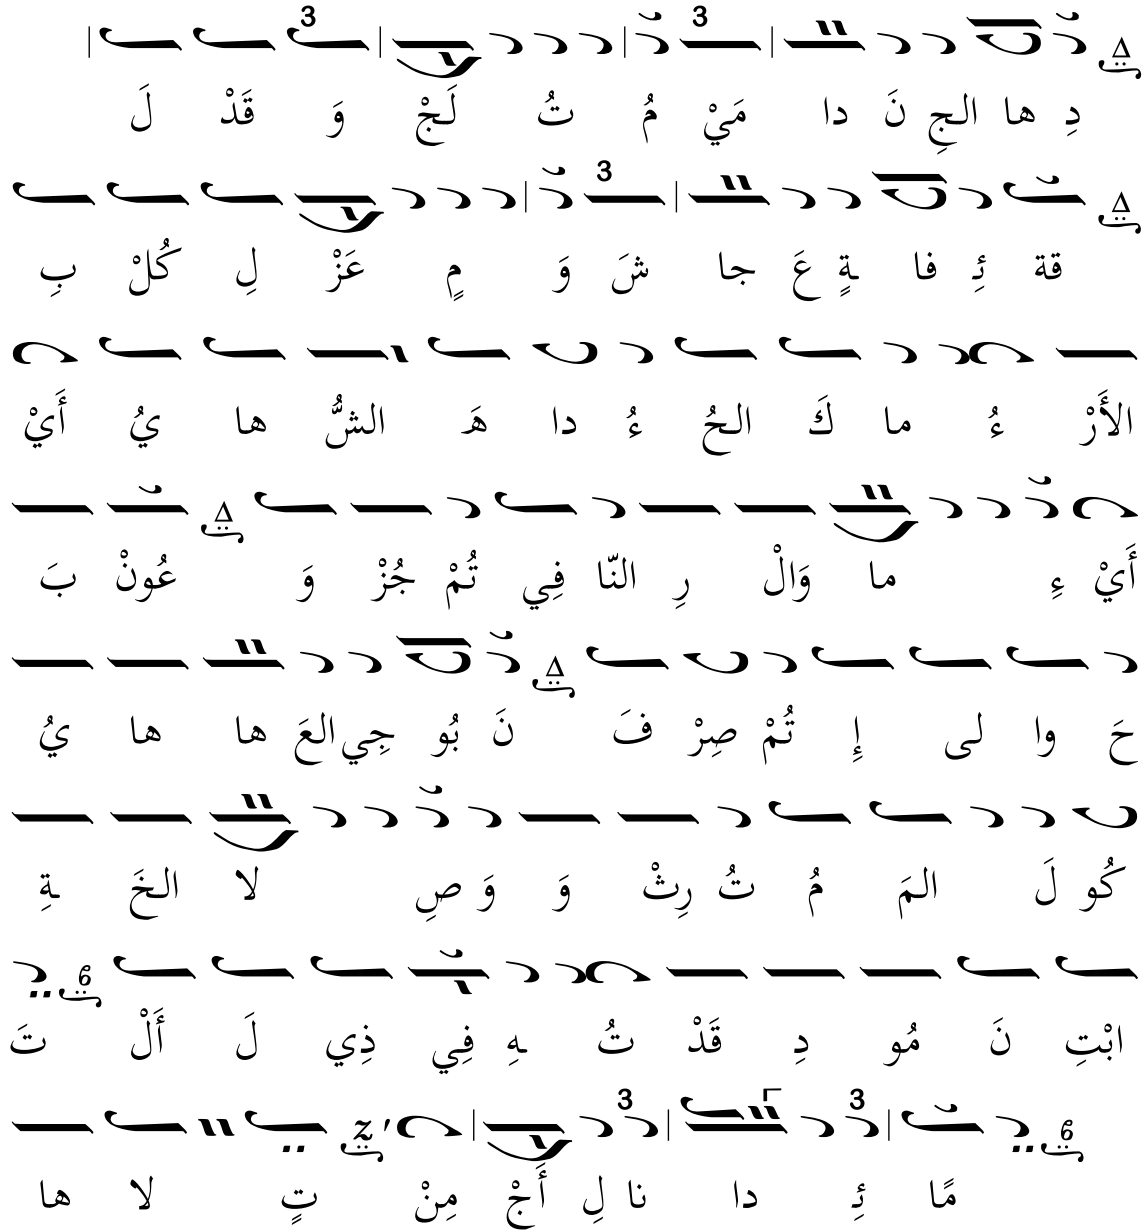 لَ قَدْ وَ لَجْ تُ مُ مَيْ دا نَ الجِ ها دِ
بِ كُلْ لِ عَزْ مٍ وَ شَ جا عَ ـةٍ فا ئِـ قة
أَيْ يُ ها الشُّ هَـ دا ءُ الحُ كَ ما ءُ الأَرْ
بَ عُونْ وَ جُزْ تُمْ فِي النّا رِ وَالْ ما ءِ أَيْ
يُ ها ها العَ جِي بُو نَ فَ صِرْ تُمْ إِ لى وا حَ
ـةِ الخَ لا صِ وَ وَ رِثْ تُ مُ المَ لَ كُو
تَ أَلْ لَ ذِي فِي ـهِ تُ قَدْ دِ مُو نَ ابْتِ
ها لا تٍ مِنْ أَجْ لِ نا دا ئِـ مًا